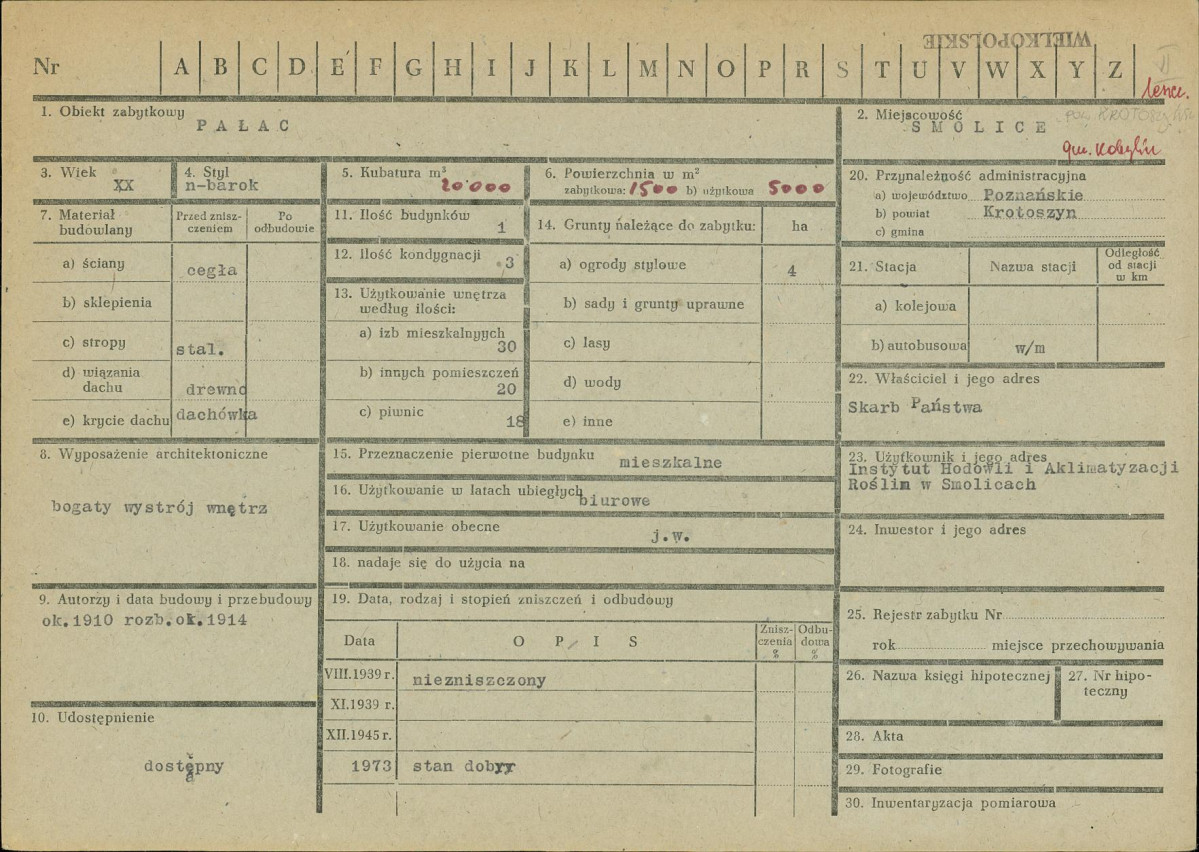 WIELKOPOLSKIE
Nr A B C D E F G H I J K L M N O P R S T U V W X Y Z
II
leszcz.
1. Obiekt zabytkowy
PAŁAC
2. Miejscowość
SMOLICE
pow. KROTOSZYN
gm. Kobylin
3. Wiek
XX
4. Styl
n-barok
5. Kubatura m³
20000
6. Powierzchnia w m²
zabytkowa: 1500 b) użytkowa 5000
20. Przynależność administracyjna
a) województwo Poznańskie
b) powiat Krotoszyn
c) gmina
7. Materiał budowlany
Przed zniszczeniem
Po odbudowie
a) ściany cegła
b) sklepienia
c) stropy stal.
d) wiązania dachu drewno
e) krycie dachu dachówka
11. Ilość budynków 1
12. Ilość kondygnacji 3
13. Użytkowanie wnętrza według ilości:
a) izb mieszkalnyych 30
b) innych pomieszczeń 20
c) piwnic 18
14. Grunty należące do zabytku: ha
a) ogrody stylowe 4
b) sady i grunty uprawne
c) lasy
d) wody
e) inne
21. Stacja
Nazwa stacji
Odległość od stacji w km
a) kolejowa
b) autobusowa w/m
22. Właściciel i jego adres
Skarb Państwa
8. Wyposażenie architektoniczne
bogaty wystrój wnętrz
15. Przeznaczenie pierwotne budynku mieszkalne
16. Użytkowanie w latach ubiegłych biurowe
17. Użytkowanie obecne j.w.
18. nadaje się do użycia na
23. Użytkownik i jego adres
Instytut Hodowli i Aklimatyzacji
Roślin w Smolicach
24. Inwestor i jego adres
9. Autorzy i data budowy i przebudowy
ok.1910 rozb.ok.1914
19. Data, rodzaj i stopień zniszczeń i odbudowy
Data
OPIS
Zniszczenia %
Odbudowa %
VIII.1939 r. niezniszczony
XI.1939 r.
XII.1945 r.
1973 stan dobry
25. Rejestr zabytku Nr
rok miejsce przechowywania
26. Nazwa księgi hipotecznej
27. Nr hipoteczny
10. Udostępnienie
dostępny
28. Akta
29. Fotografie
30. Inwentaryzacja pomiarowa